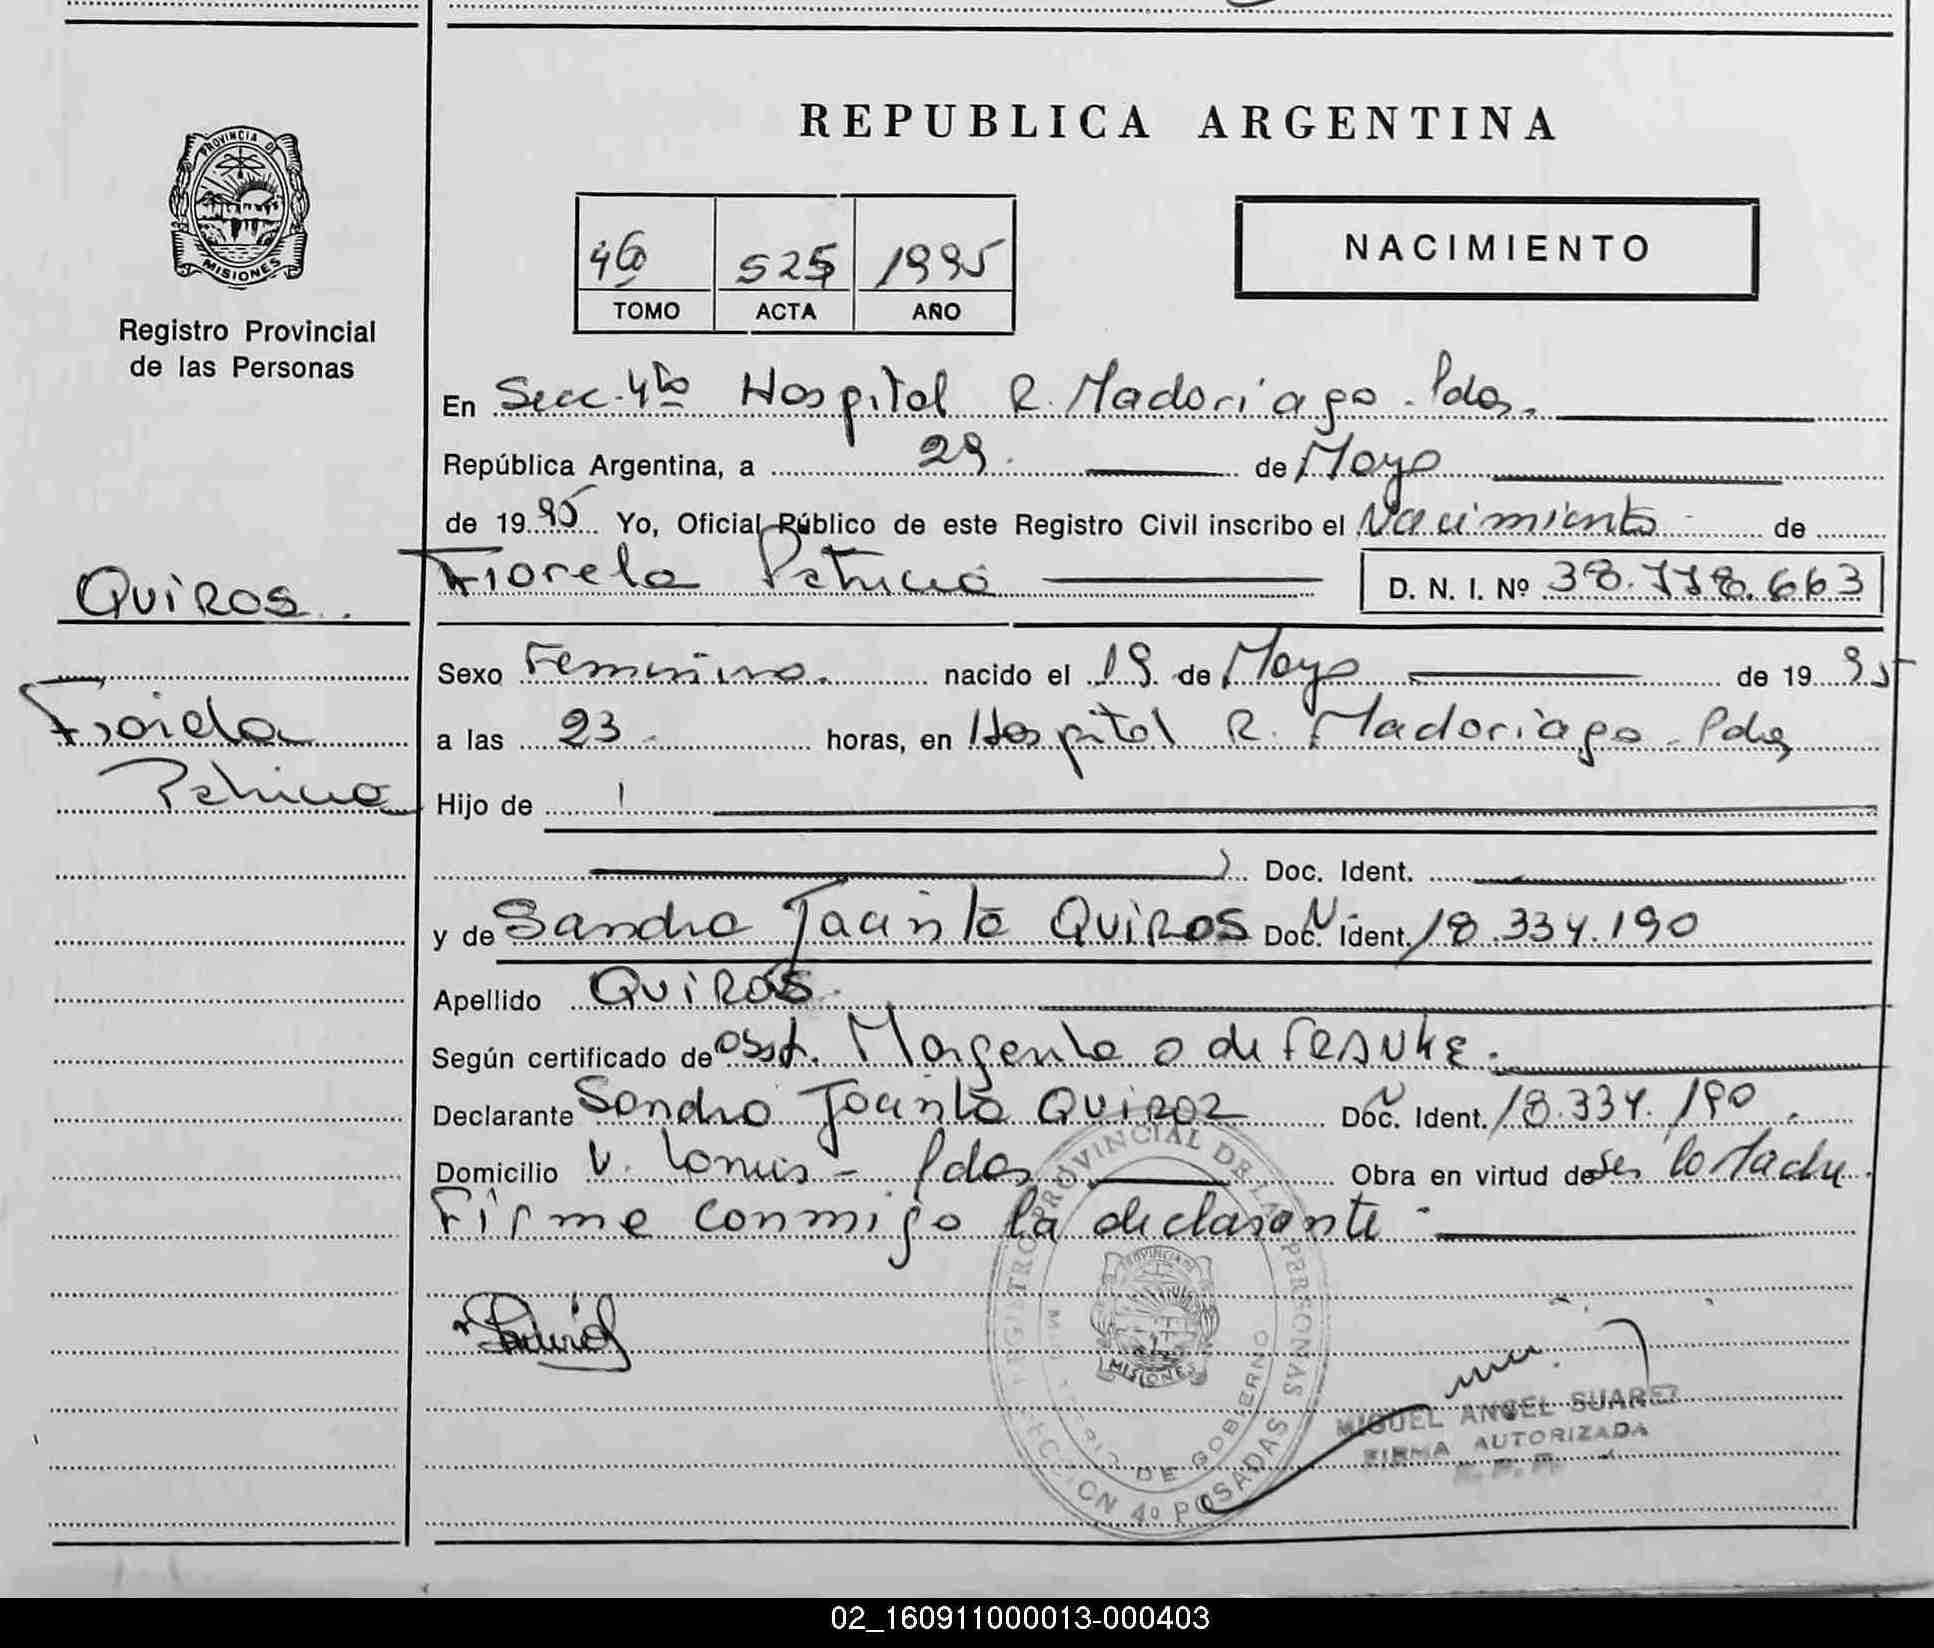 PROVINCIA DE
MISIONES
Registro Provincial
de las Personas
QUIROS
Fiorela
Patricia
REPUBLICA ARGENTINA
NACIMIENTO
4to 525 1995
TOMO ACTA AÑO
En Secc. 4ta Hospital R. Madariaga - Pdas.
República Argentina, a 29 de Mayo
de 1995 Yo, Oficial Público de este Registro Civil inscribo el Nacimiento de
Fiorela Patricia D. N. I. Nº 38.778.663
Sexo Femenino. nacido el 19 de Mayo de 1995
a las 23 horas, en Hospital R. Madariaga - Pdas
Hijo de
Doc. Ident.
y de Sandra Jacinta QUIROS Doc. Ident. 18.334.190
Apellido QUIROS
Según certificado de Obst. Margarita O de
Declarante Sandra Jacinta QUIROZ Doc. Ident. 18.334.190
Domicilio V. Lanus - Pdas Obra en virtud de ser la Madre.
Firma conmigo la declarante
REGISTRO PROVINCIAL DE LAS PERSONAS
MINISTERIO DE GOBIERNO
PROVINCIA DE
MISIONES
SECCION 4º POSADAS
MIGUEL ANGEL SUAREZ
FIRMA AUTORIZADA
R. P. P.
02_160911000013-000403